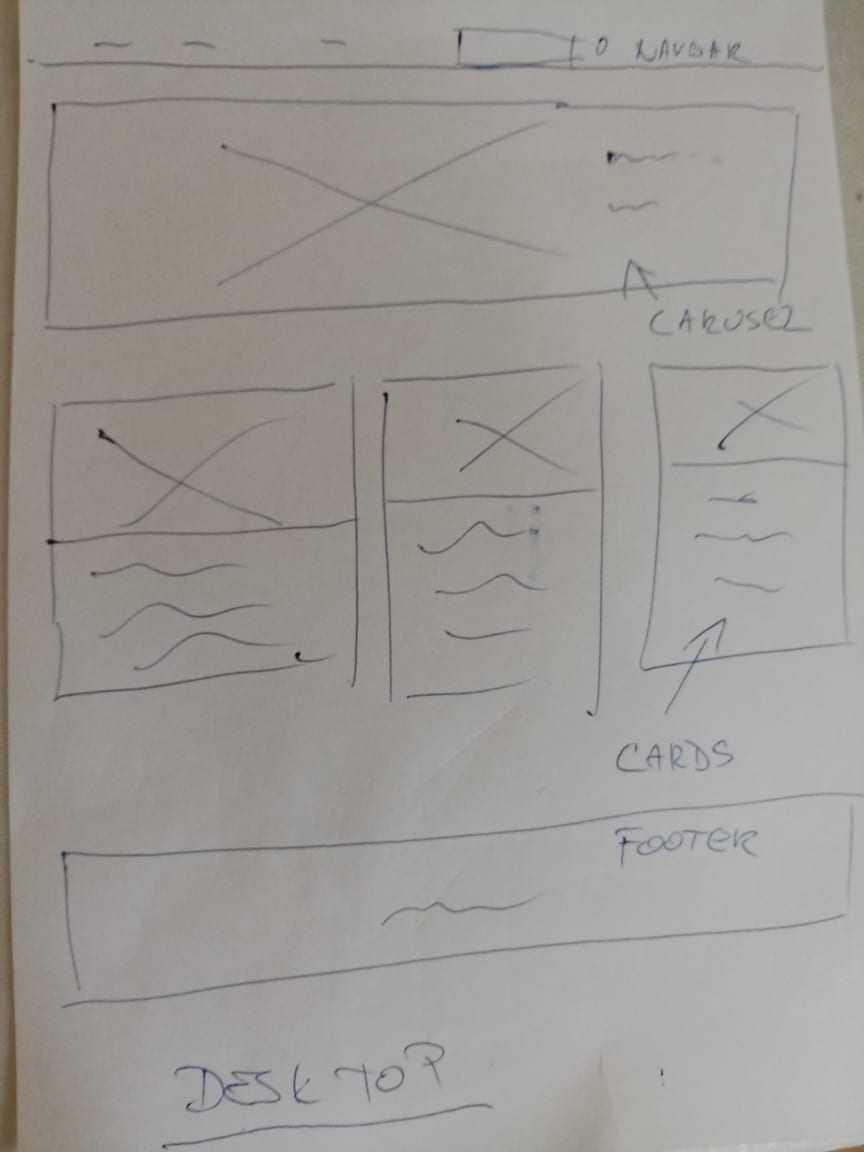 NAVBAR
CARUSEL
CARDS
FOOTER
DESKTOP